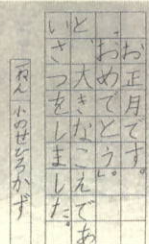 お正月です。
「おめでとう。」
と、大きなこえであ
いさつをしました。
一ねん 小のせきかず